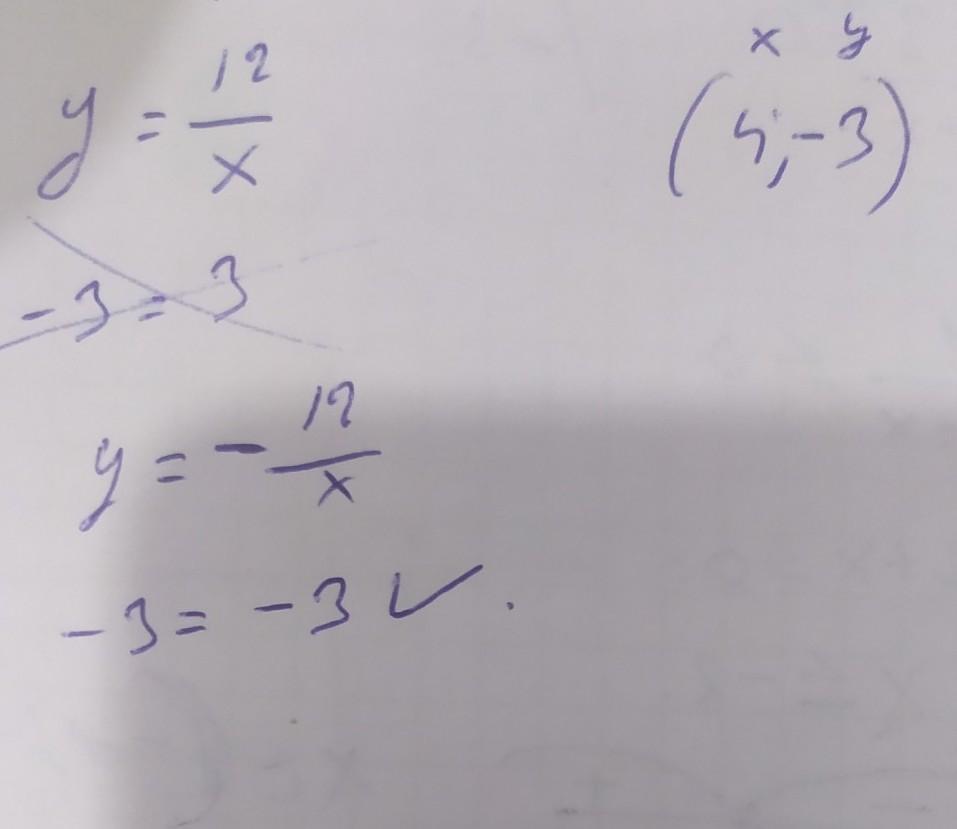 x y
y = 12/x
(4; -3)
-3 = 3
y = - 12/x
-3 = -3 ✓.